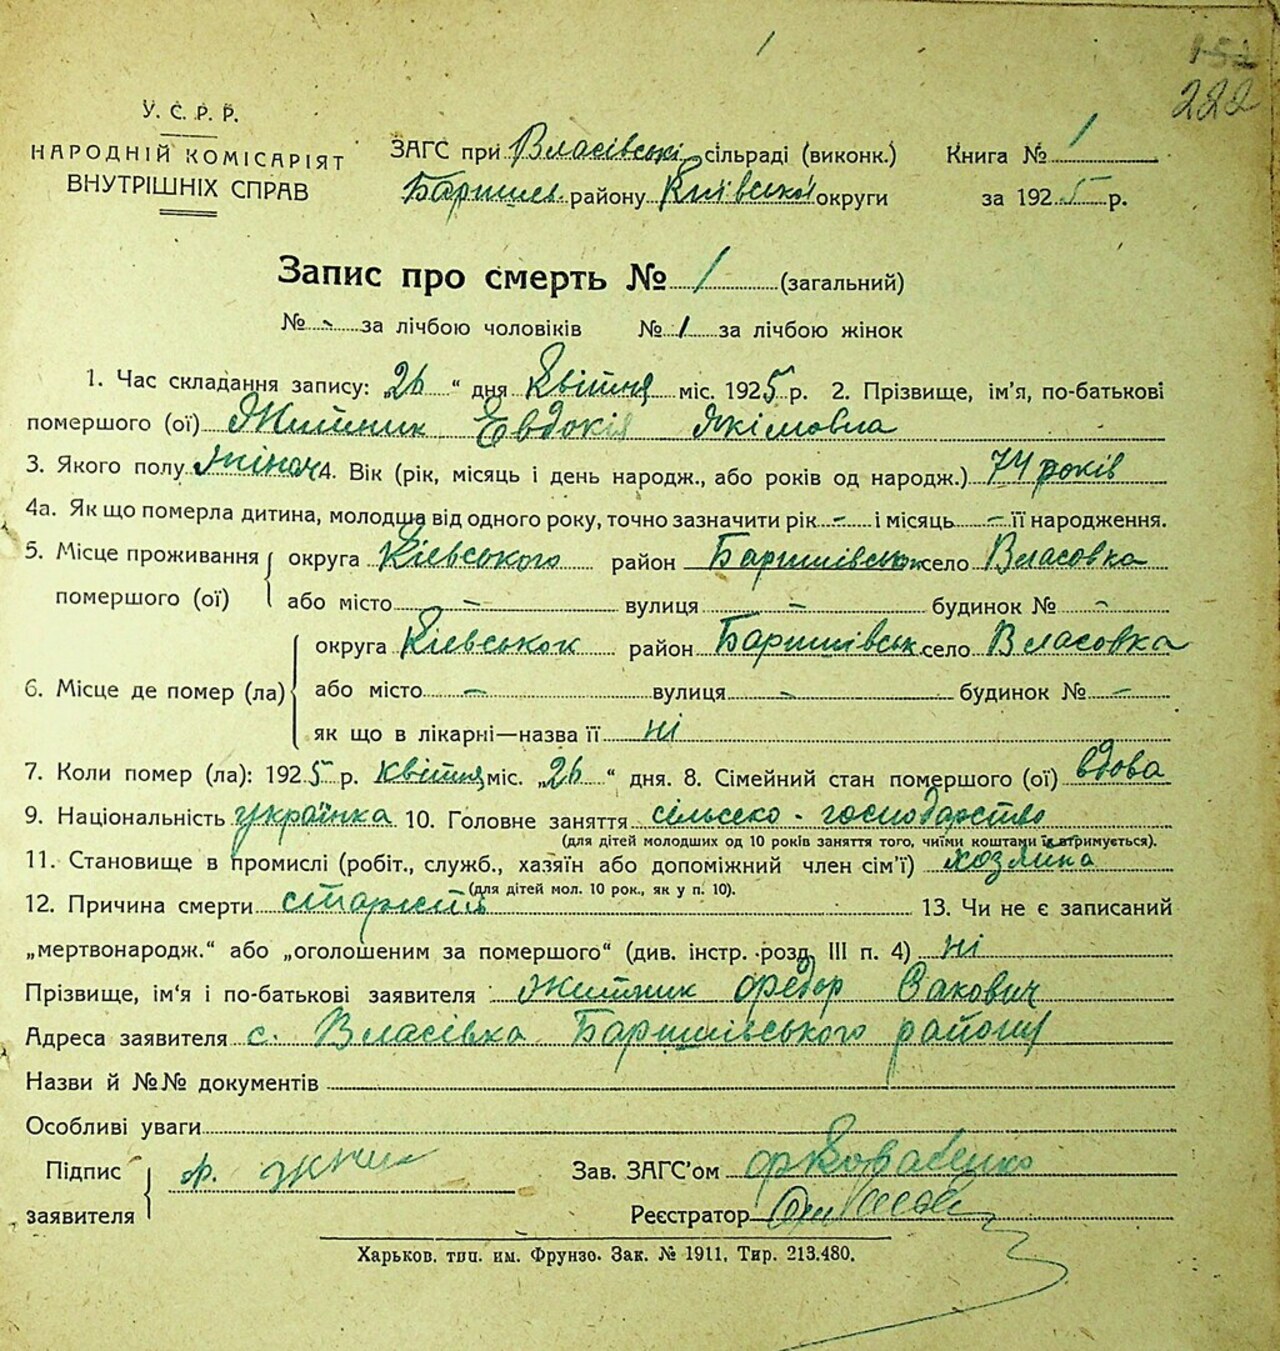 152
222
У. С. Р. Р.
НАРОДНІЙ КОМІСАРІЯТ
ВНУТРІШНІХ СПРАВ
ЗАГС при Власівські сільраді (виконк.) Книга № 1
Баришів. району Київської округи за 1925 р.
Запис про смерть № 1 (загальний)
№ - за лічбою чоловіків № 1 за лічбою жінок
1. Час складання запису: „26 “ дня Квітня міс. 1925 р. 2. Прізвище, ім'я, по-батькові
помершого (ої) Житник Евдокія Якімовна
3. Якого полу жіноч 4. Вік (рік, місяць і день народж., або років од народж.) 74 років
4а. Як що померла дитина, молодша від одного року, точно зазначити рік - і місяць - її народження.
5. Місце проживання округа Кіевського район Баришівськ село Власовка
помершого (ої) або місто - вулиця - будинок № -
округа Кіевськок район Баришівськ село Власовка
6. Місце де помер (ла) або місто - вулиця - будинок № -
як що в лікарні—назва її ні
7. Коли помер (ла): 1925 р. квітня міс. „26 “ дня. 8. Сімейний стан помершого (ої) вдова
9. Національність українка 10. Головне заняття сільсько - господарство
(для дітей молодших од 10 років заняття того, чиїми коштами їх втримується).
11. Становище в промислі (робіт., служб., хазяїн або допоміжний член сім'ї) хозяика
(для дітей мол. 10 рок., як у п. 10).
12. Причина смерти старість 13. Чи не є записаний
„мертвонародж.“ або „оголошеним за помершого“ (див. інстр. розд. III п. 4) ні
Прізвище, ім'я і по-батькові заявителя Житник Федор Савович
Адреса заявителя с. Власівка Баришівського району
Назви й №№ документів
Особливі уваги
Підпис Ф. Зав. ЗАГС'ом Коваленко
заявителя Реєстратор
Харьков. тип. им. Фрунзе. Зак. № 1911, Тир. 213.480.